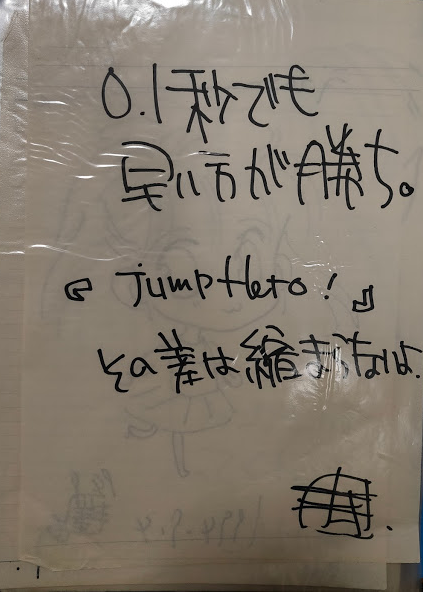 0.1秒でも
早い方が勝ち。
『jumpHero!』
その差は縮まらない.
1994.9.4